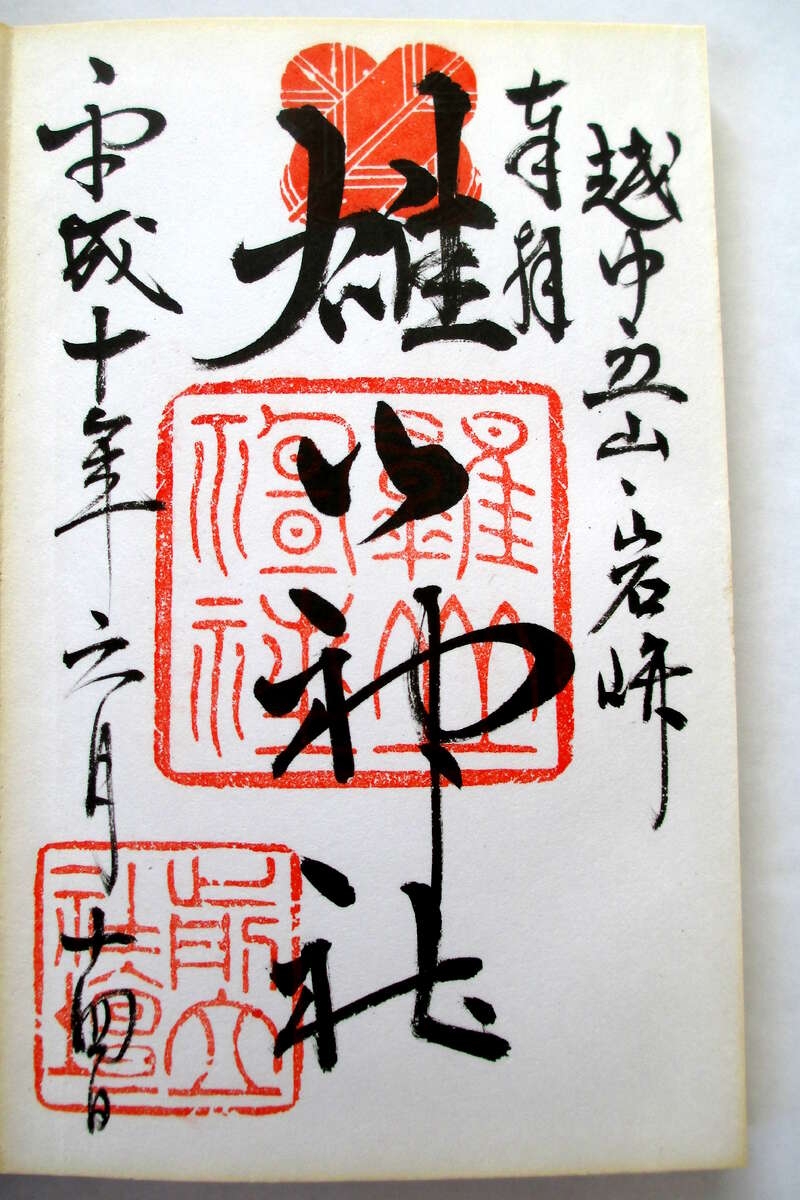 越中立山、岩峅
奉拝
雄山神社
平成十年六月十四日
雄山神社
前立社壇